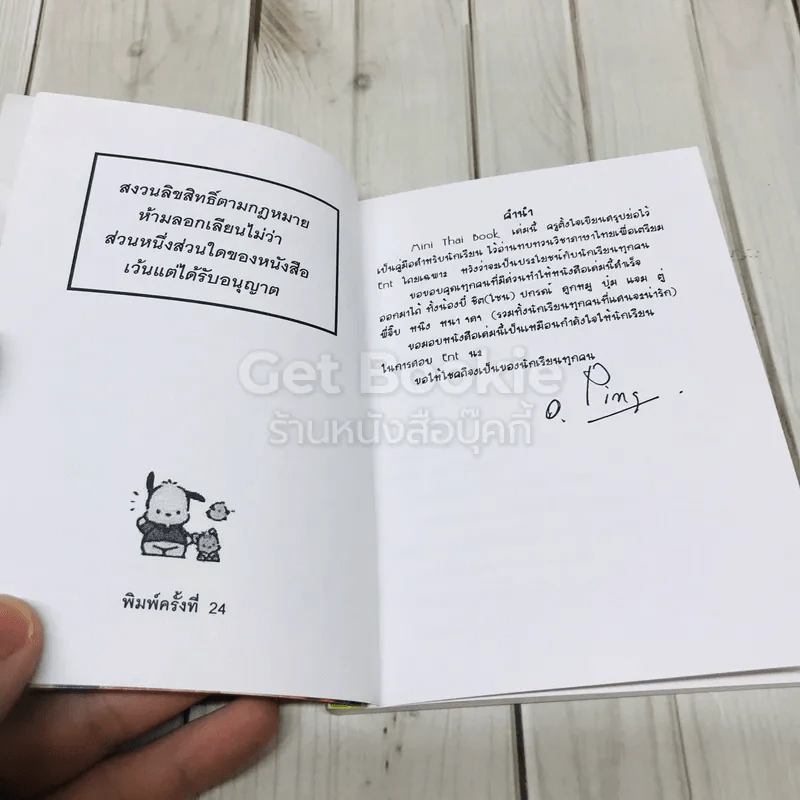 สงวนลิขสิทธิ์ตามกฎหมาย
ห้ามลอกเลียนไม่ว่า
ส่วนหนึ่งส่วนใดของหนังสือ
เว้นแต่ได้รับอนุญาต
พิมพ์ครั้งที่ 24
คำนำ
Mini Thai Book เล่มนี้ ครูตั้งใจเขียนสรุปย่อไว้
เป็นคู่มือสำหรับนักเรียน ไว้อ่านทบทวนวิชาภาษาไทยเพื่อเตรียม
Ent โดยเฉพาะ หวังว่าจะเป็นประโยชน์กับนักเรียนทุกคน
ขอขอบคุณทุกคนที่มีส่วนทำให้หนังสือเล่มนี้สำเร็จ
ออกมาได้ ทั้งน้องบี๋ ธิต(ไซน) ปกรณ์ ลูกหมู ปุ่ม แจม ตู่
พี่จิ๊บ หนึง หนา (รวมทั้งนักเรียนทุกคนที่แสนจะน่ารัก)
ขอมอบหนังสือเล่มนี้เป็นเหมือนกำลังใจให้นักเรียน
ในการสอบ Ent นะ
ขอให้โชคดีจงเป็นของนักเรียนทุกคน
อ. Ping
Get Bookie
ร้านหนังสือบุ๊คกี้